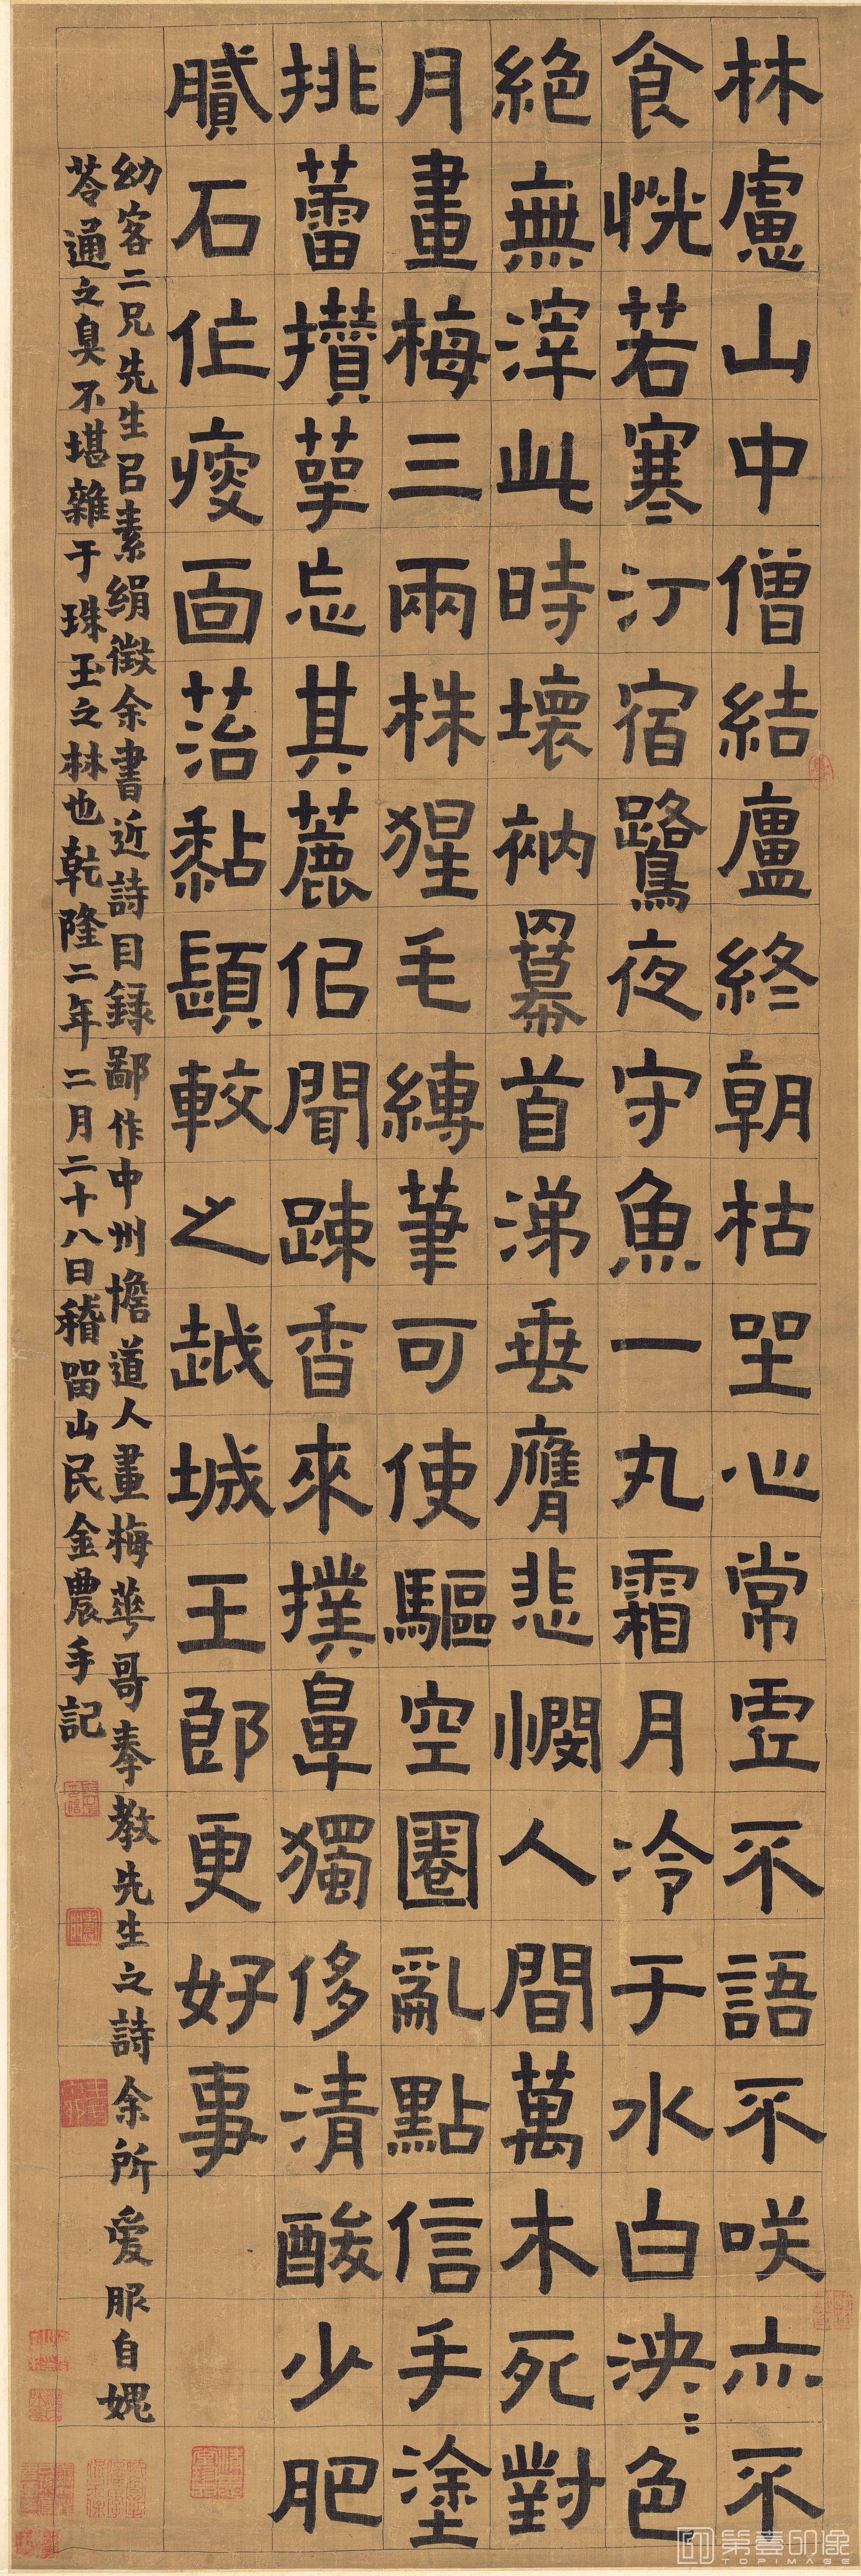 林慮山中僧結廬終朝枯坐心常霊不語不咲亦不
食恍若寒汀宿鷺夜守魚一丸霜月冷于水白泱〻色
絶無滓此時壞衲冪首涕垂膺悲憫人間萬木死對
月畫梅三兩株猩毛縛筆可使驅空圈亂點信手塗
挑蕾攢萼忘其麤侣聞踈香來撲鼻獨侈清酸少肥
膩石作瘦面苔黏顋較之越城王郎更好事
幼客二兄先生召素絹徵余書近詩目録鄙作中州憺道人畫梅華哥奉教先生之詩余所爱服自媿
苓通之臭不堪雜于珠玉之林也乾隆二年二月二十八日稽留山民金農手記
第壹印像
TOPIMAGE